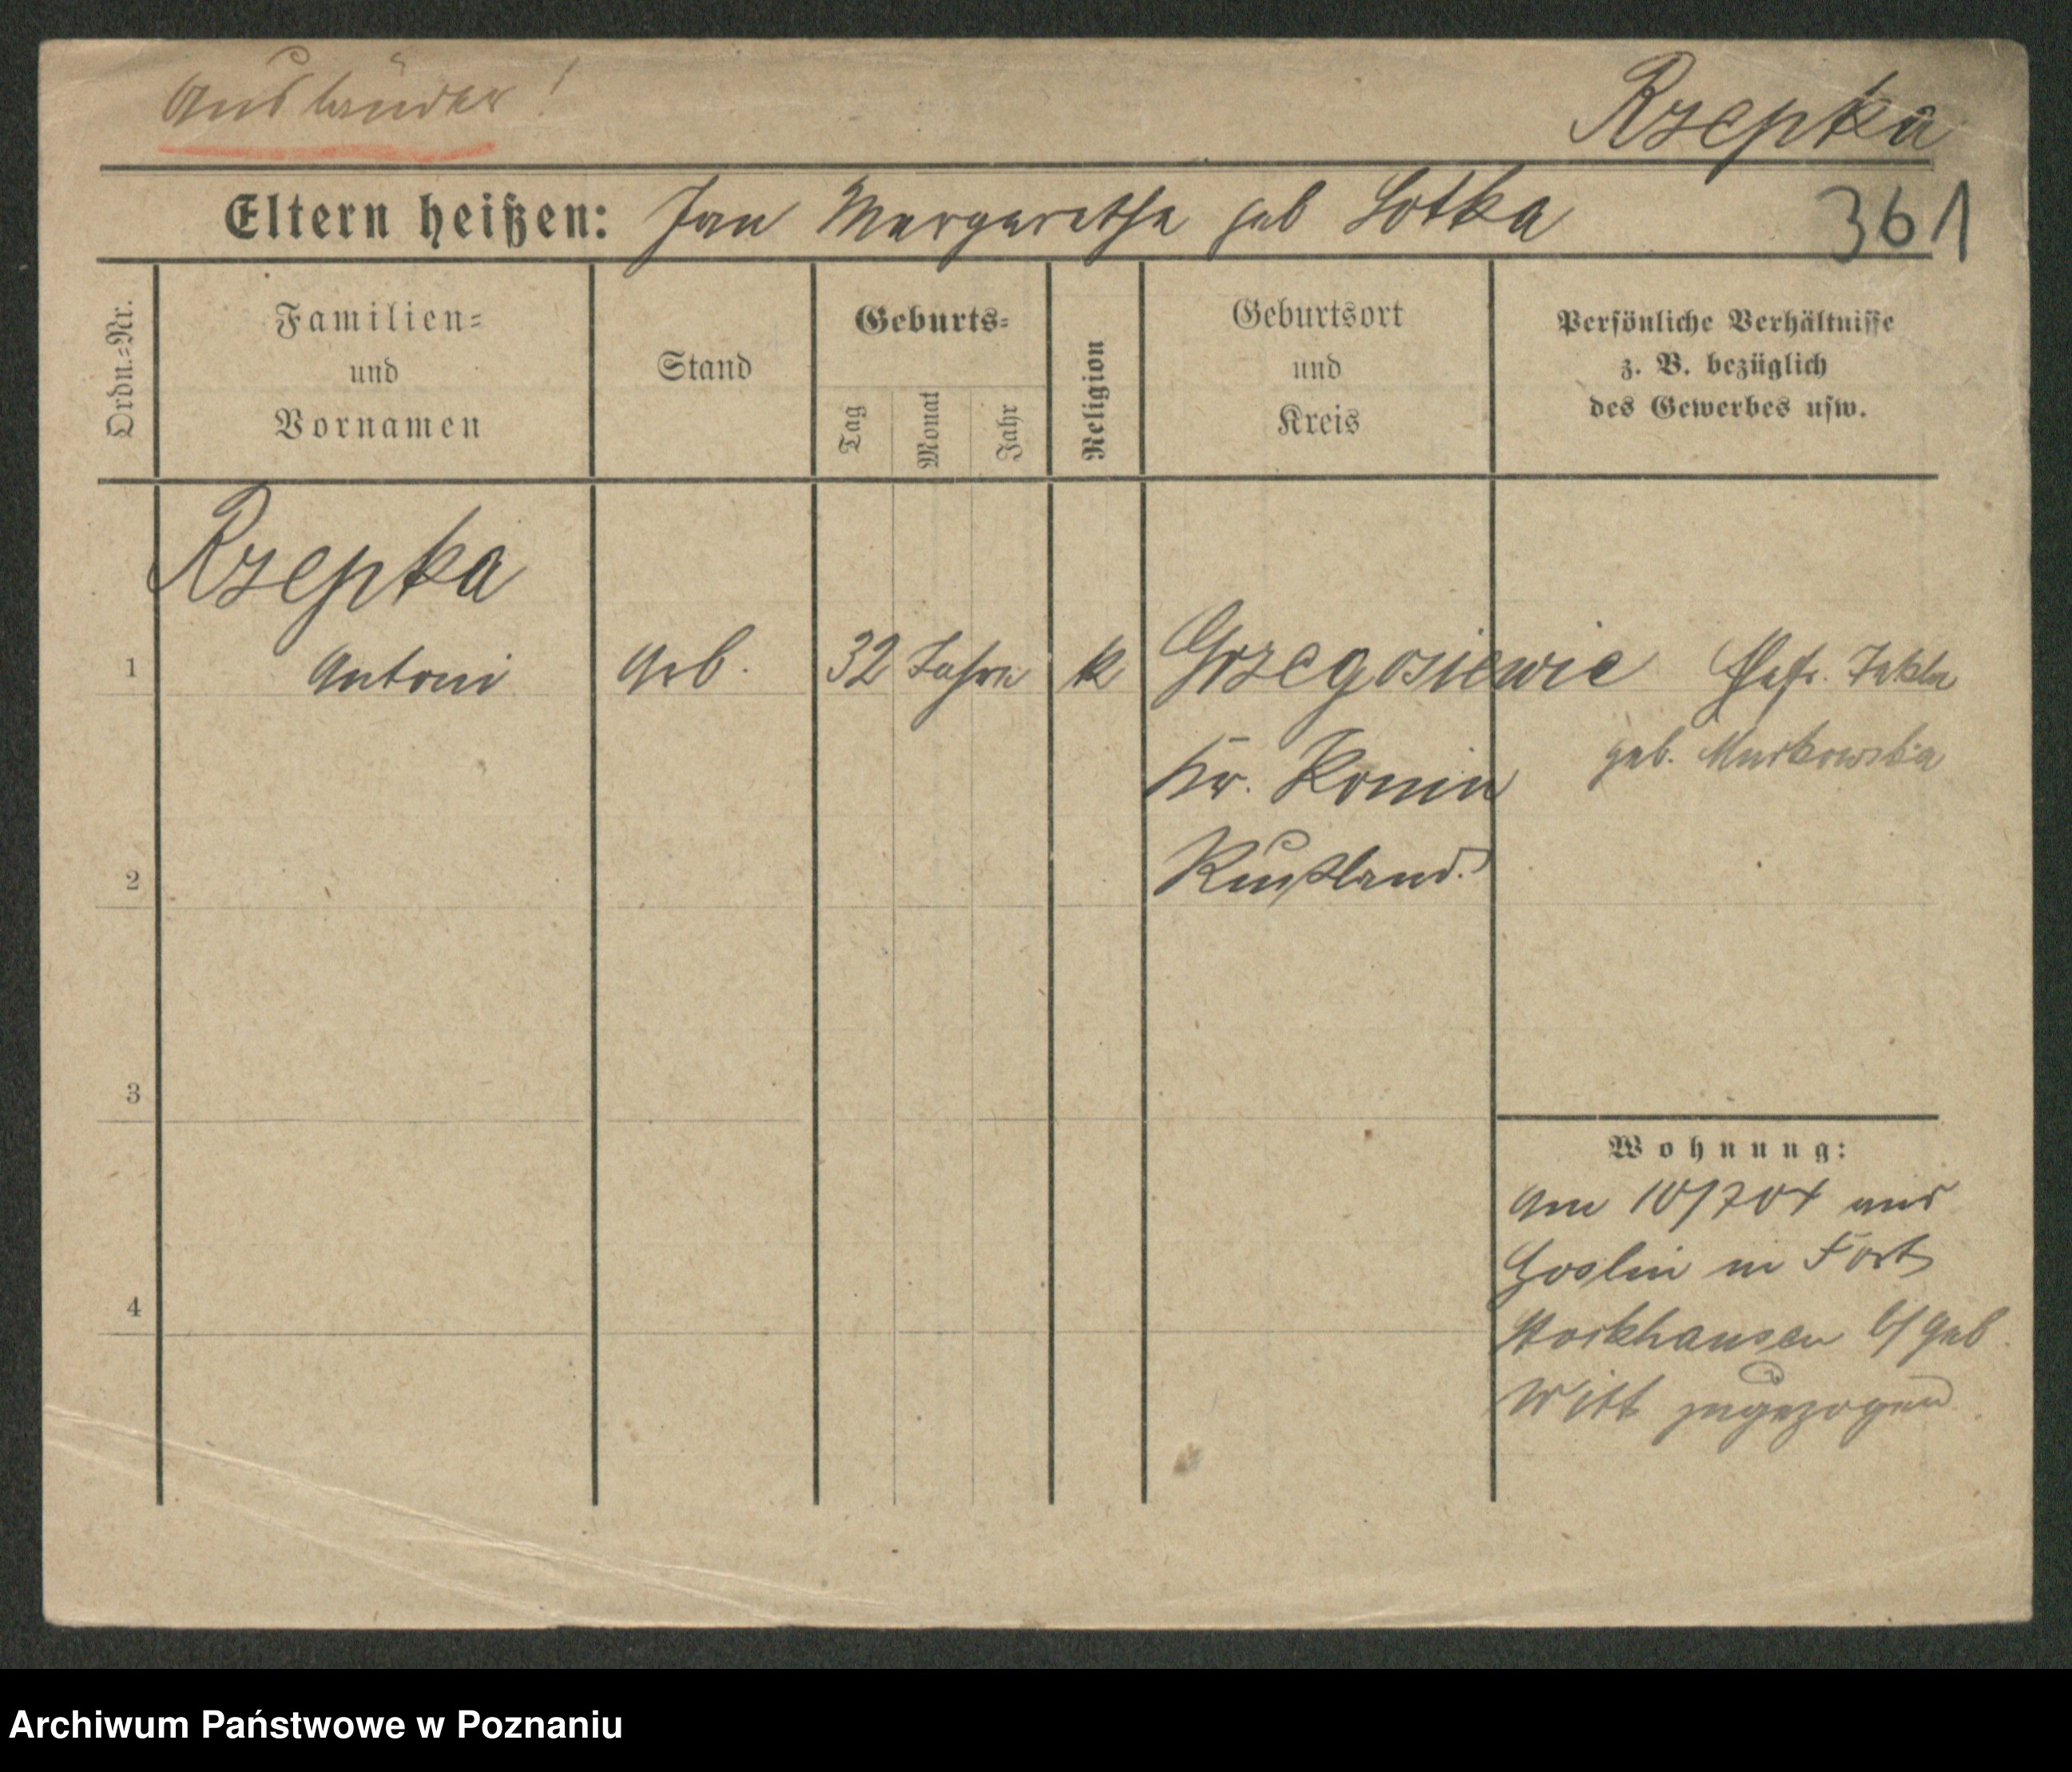 Ausländer!
Rzepka
Eltern heißen: Jan Margarethe geb Lotka
361
Ordn.=Nr.
Familien=
und
Vornamen
Stand
Geburts=
Tag
Monat
Jahr
Religion
Geburtsort
und
Kreis
Persönliche Verhältnisse
z. B. bezüglich
des Gewerbes usw.
Rzepka
1 Antoni Arb. 32 Jahre k Grzegosiewic Ehefr. Tekla
geb. Murkowska
Kr. Konin
Rußland.
2
3
4
Wohnung:
Am 10/7 04 aus
Goslin in Fort
Stockhausen b/ Geb.
Witt zugezogen
Archiwum Państwowe w Poznaniu